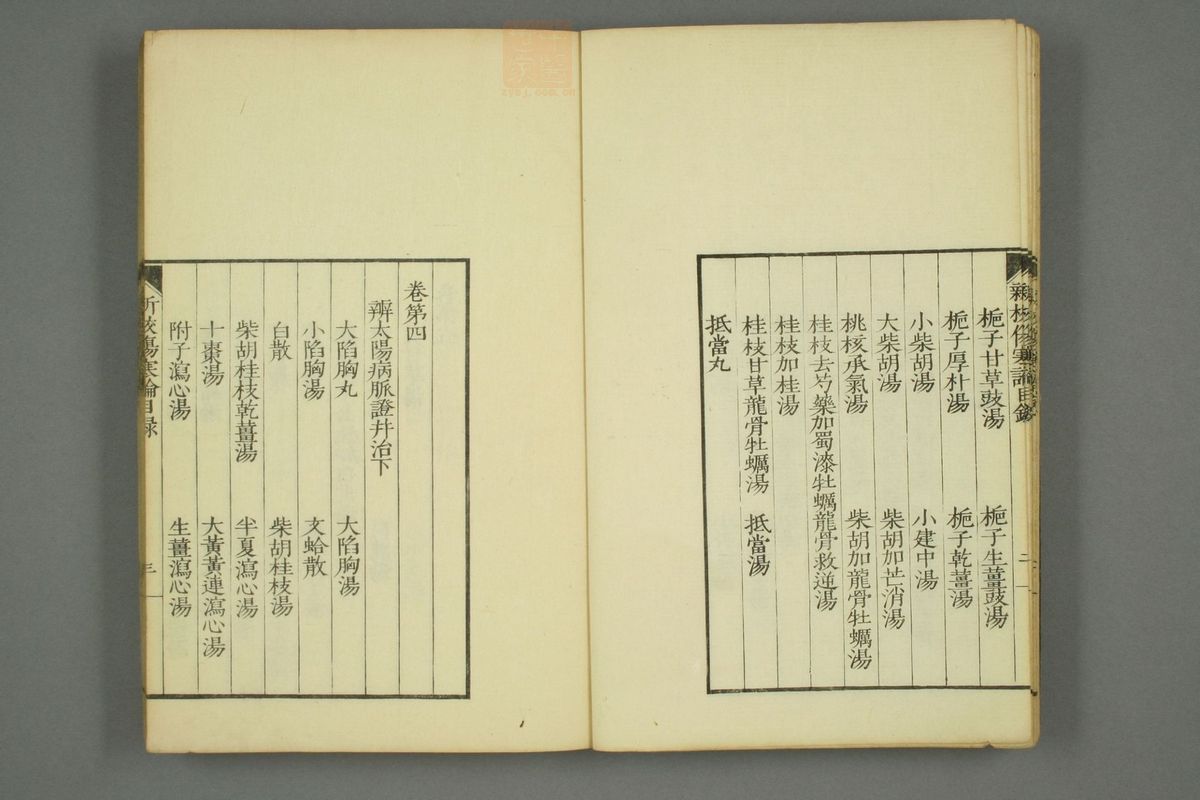 栀子甘草豉湯 栀子生薑豉湯
栀子厚朴湯 栀子乾薑湯
小柴胡湯 小建中湯
大柴胡湯 柴胡加芒消湯
桃核承氣湯 柴胡加龍骨牡蠣湯
桂枝去芍藥加蜀漆牡蠣龍骨救逆湯
桂枝加桂湯
桂枝甘草龍骨牡蠣湯 抵當湯
抵當丸
卷第四
辨太陽病脈證并治下
大陷胸丸 大陷胸湯
小陷胸湯 文蛤散
白散 柴胡桂枝湯
柴胡桂枝乾薑湯 半夏瀉心湯
十棗湯 大黃黃連瀉心湯
附子瀉心湯 生薑瀉心湯
傷寒論目録 三